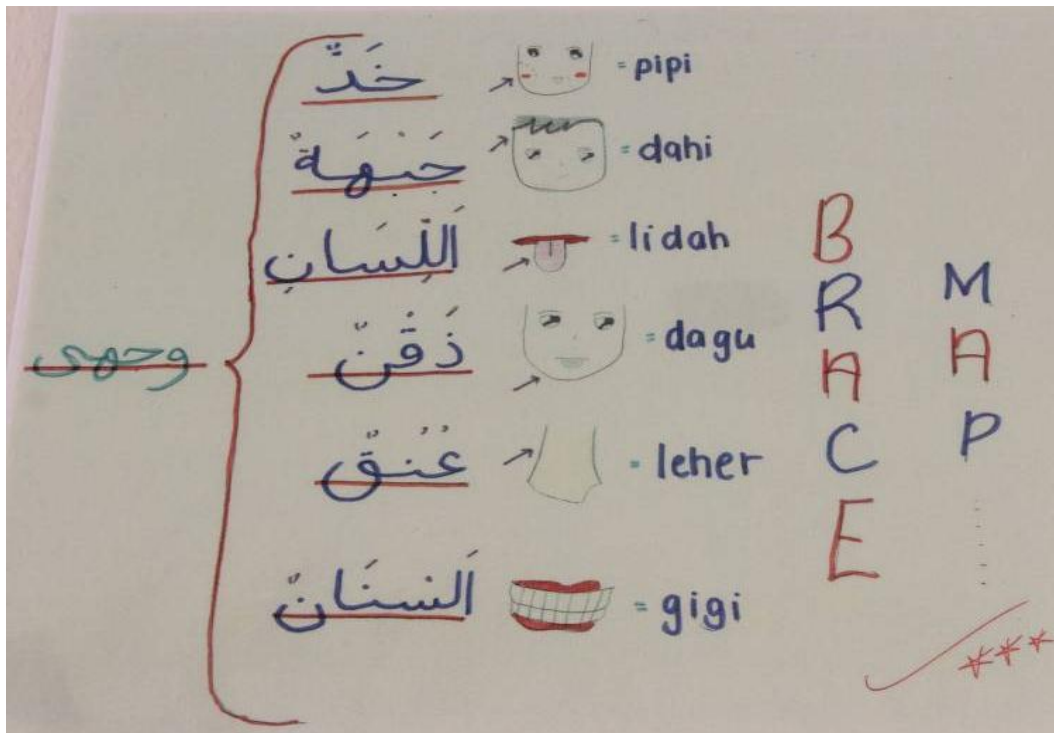 خَدٌّ = pipi
جَبْهَةٌ = dahi
اَللِّسَانِ = lidah
ذَقْنٌ = dagu
عُنُقٌ = leher
اَلسنَانٌ = gigi
وجهى
BRACE
MAP